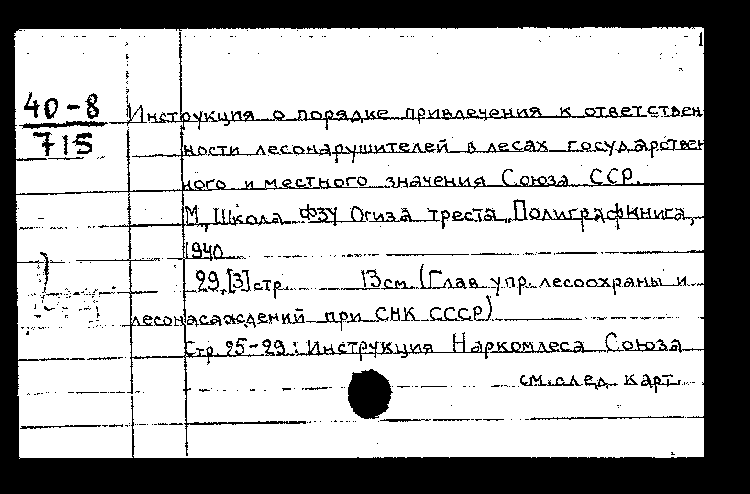 1
40-8
715
Инструкция о порядке привлечения к ответствен
ности лесонарушителей в лесах государствен
ного и местного значения Союза ССР.
М, Школа ФЗУ Огиза треста "Полиграфкнига",
1940
29,[3] стр. 13см (Глав упр. лесоохраны и
лесонасаждений при СНК СССР)
Стр. 25-29: Инструкция Наркомлеса Союза
см. след. карт.